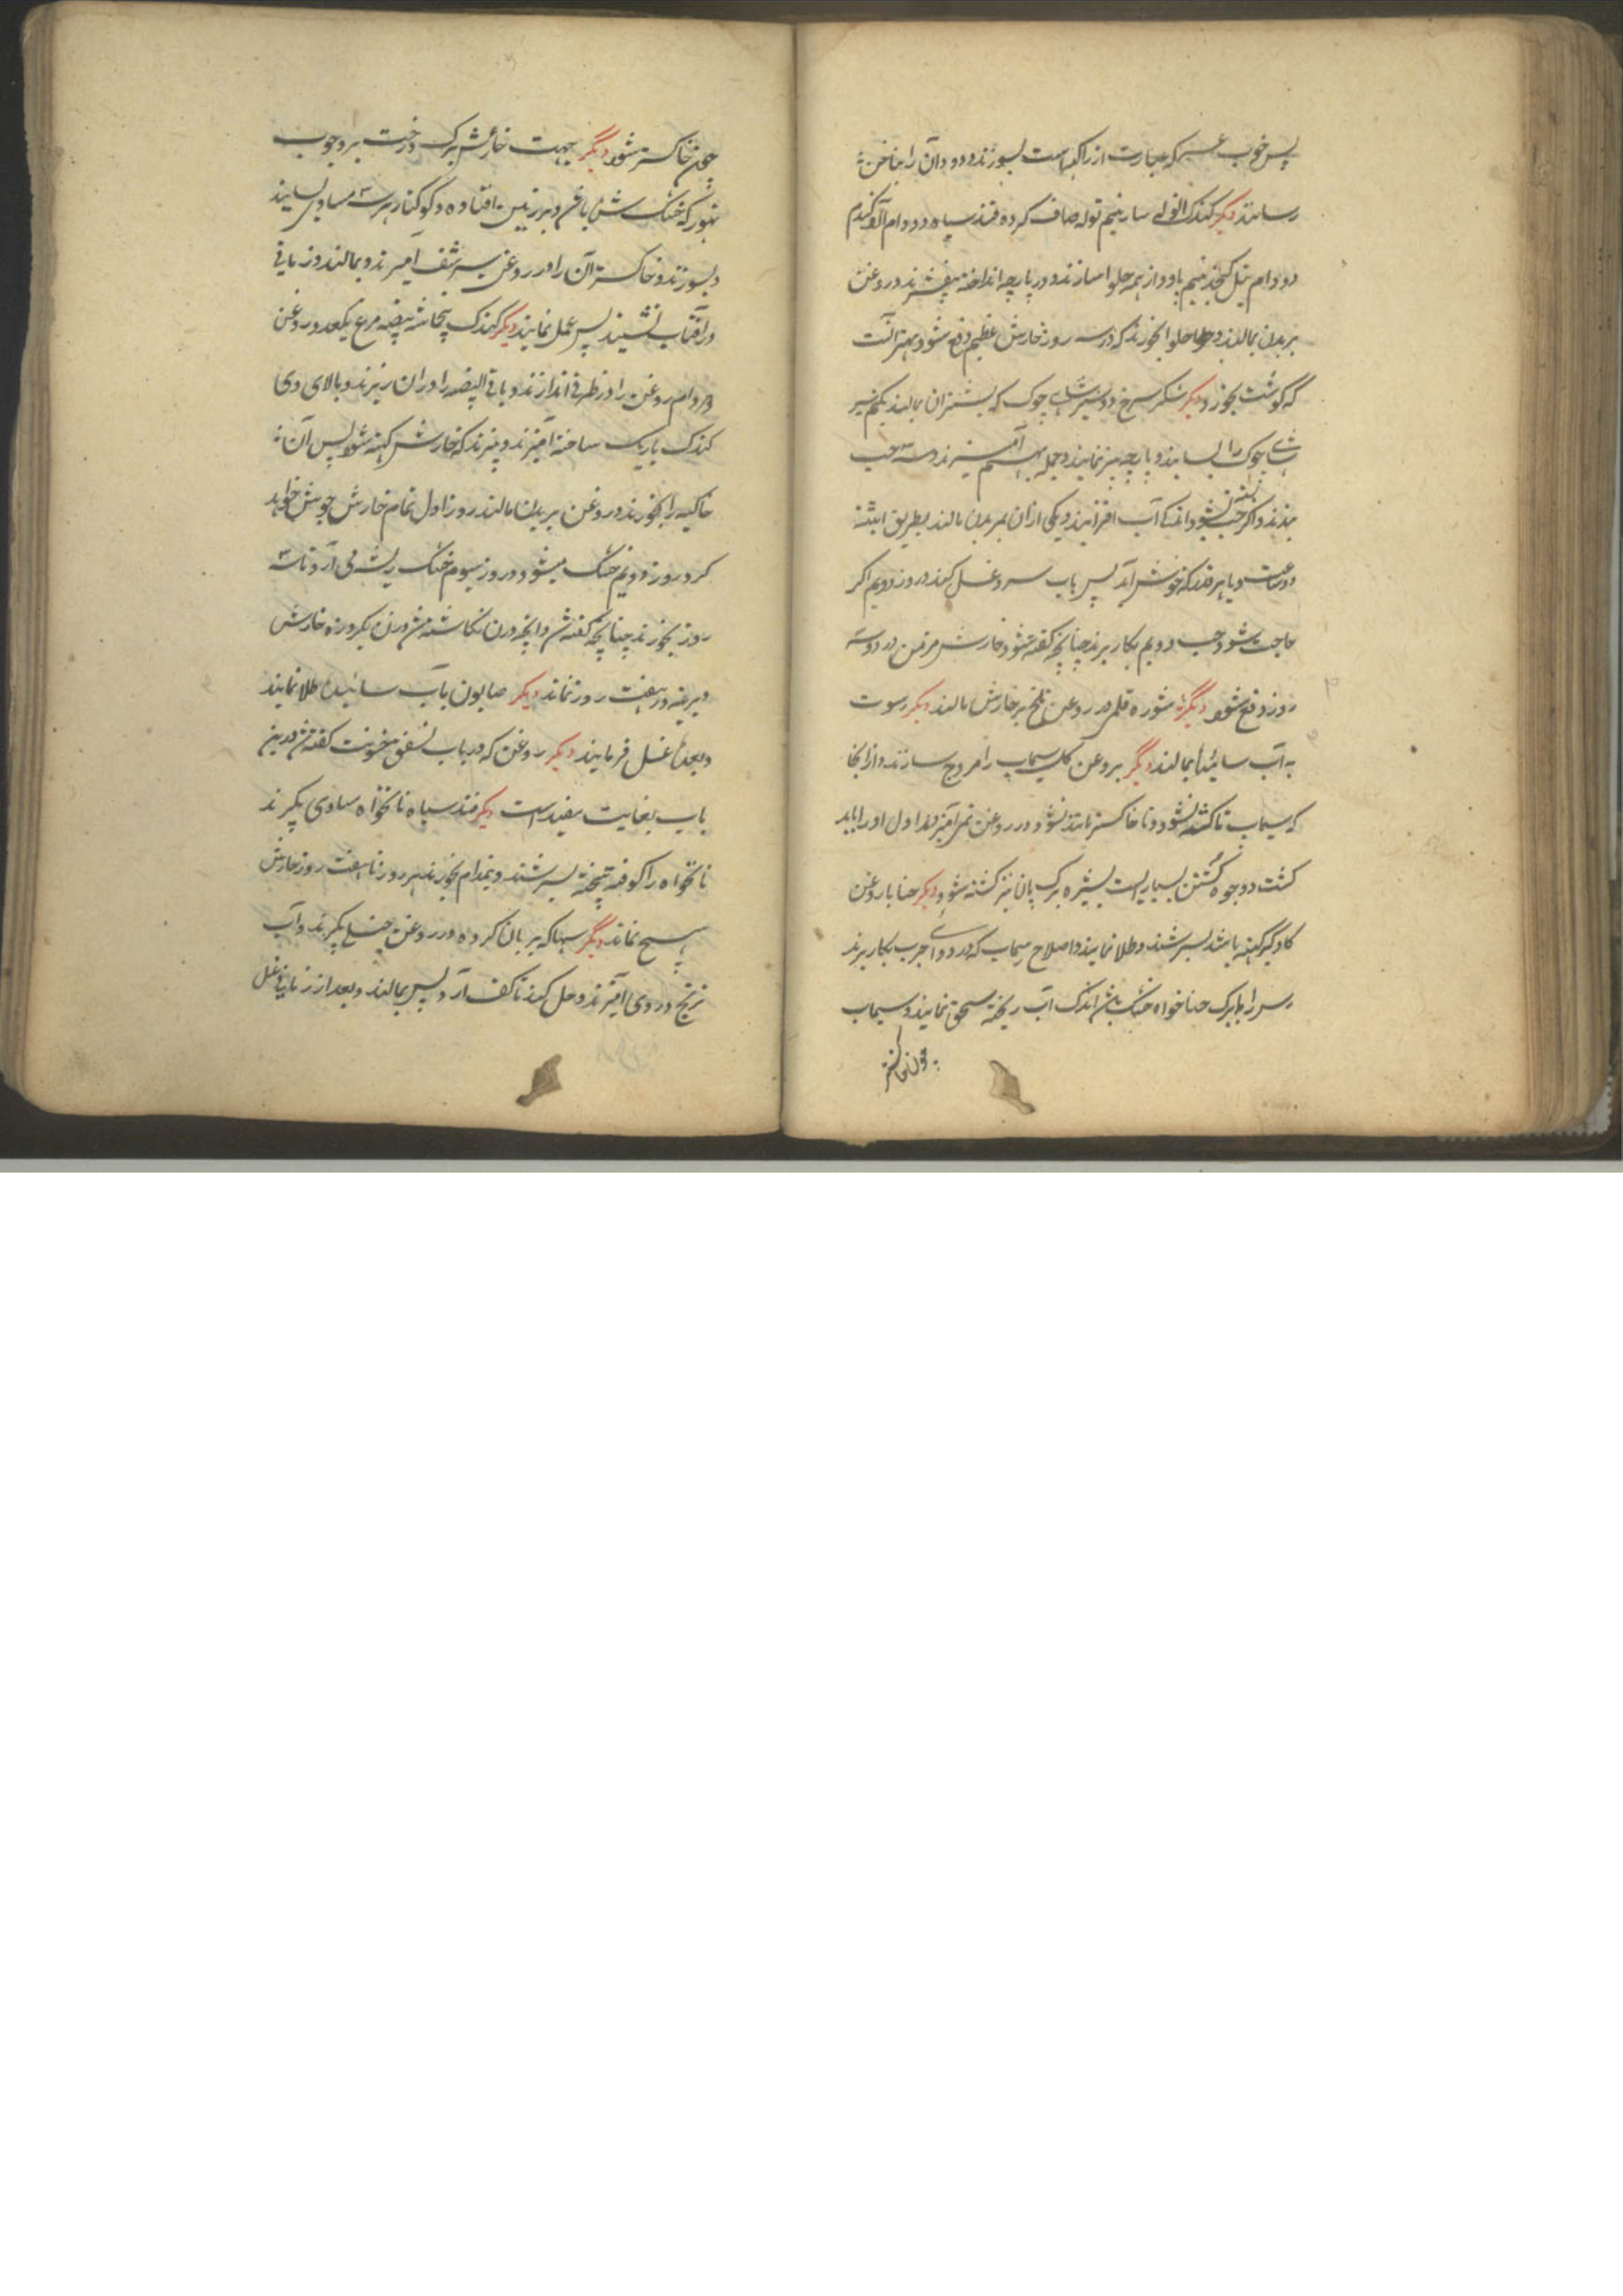 پس خوب عسر که عبارت از راکهاست بسوزند و دود آن را بناخن
رسانند دیگر کندک انوله سار نیم توله صاف کرده قند سیاه دو دام آرد کندم
دو دام تیل کنجد نیم پاو از همه حلوا سازند و در پارچه انداخته بیفشرند و روغن
بر بدن بمالند و حلوا بخورند که در سه روز خارش عظیم دفع شود بهتر آنست
که گوشت بخورد دیگر شکر سرخ دو سیر چوک که بشتران بمالند یکنیم سیر
چوک را بسایند و پارچه بیز نمایند و جمله بهم آمیزند و سه حب
بندند و اگر حب بسته نشود اندکی آب افزایند و یکی ازان بر بدن مالند بطریق ابتنه
دو ساعت و یا هر قدر که خوش آید پس بآب سرد غسل کنند و روز دویم اگر
حاجت شود حب دویم بکار برند چنانچه گفته شود خارش مزمن در دو سه
روز دفع شود دیگر شوره قلمی در روغن تلخ بر خارش مالند دیگر رسوت
به آب سائیده بمالند دیگر بروغن سیماب را مروج سازند و از آنجا
که سیماب تا کشته نشود و تا خاکستر مانند نشود در روغن نمی آمیزد اول او را باید
کشت و وجوه کشتن بسیار است بشیره برک پان نیز کشته شود دیگر حنا با روغن
کاو که کهنه باشد بسرشند و طلا نمایند و اصلاح سیماب که در دوای جرب بکار برند
را با برک حنا خواه خشک باشد اندک آب ریخته سحق نمایند و سیماب
چون خاکستر
چون خاکستر شود دیگر جهت خارش برک درخت بر و چوب
تهور که خشک شده باشد و بر زمین افتاده و کوکنار هر سه مساوی بسایند
و بسوزند و خاکستر آن را در روغن سرشف آمیزند و بمالند و زمانی
در آفتاب نشینند پس عمل نمایند دیگر کندک پنجماشه بیضه مرغ یکعدد روغن
دو دام روغن را در ظرفی اندازند و باقی البیضه را دران ریزند و بالای وی
کندک باریک ساخته آمیزند و پزند که خارش کهنه شود پس آن
خاکینه را بخورند و روغن بر بدن مالند روز اول تمام خارش جوش خواهد
کرد و روز دویم خشک میشود و روز سیوم خشک ریشه می آرد تا سه
روز بخورند چنانچه گفته شد و آنچه دران نکاشته شد وزن یکروزه خارش
دیرینه در هفت روز نماند دیگر صابون بآب سائیده طلا نمایند
و بعده غسل فرمایند دیگر روغن که در باب تشقق خشونت گفته شد درین
باب بغایت مفید است دیگر قند سیاه نانخواه مساوی بگیرند
نانخواه را کوفته بیخته بسرشند و نیمدام بخورند هر روز تا هفت روز خارش
هیچ نماند دیگر سهاکه بریان کرده در روغن چنبیلی بگیرند و آب
ترنج در وی آمیزند و حل کنند تا کف آرد پس بمالند و بعد از زمانی غسل